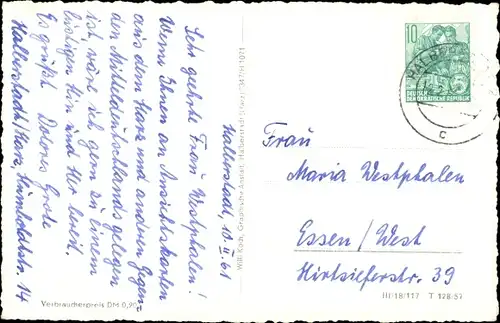 Halberstadt, 10.II.61
Sehr geehrte Frau Westphalen!
Wenn Ihnen an Ansichtskarten
aus dem Harz und andern Gegen-
den Mitteldeutschlands gelegen
ist, wäre ich gern zu einem
hin und her bereit.
Es grüßt Dolores Grode
Halberstadt/Harz, Humboldtstr. 14
Verbraucherpreis DM 0,90
Willi Koch, Graphische Anstalt, Halberstadt
10
DEUTSCHE
DEMOKRATISCHE REPUBLIK
c
Frau
Maria Westphalen
Essen/West
Hirtsieferstr. 39
III/18/117 T 128-57